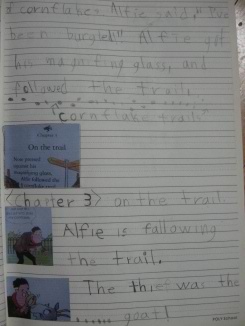 cornflakes Alfie said, "I've
been burgled!" Alfie got
his magnifting glass, and
followed the trail.
"cornflake trails"
Chapter 3
On the trail
Alfie followed the
<Chapter 3> on the trail
Alfie is following
the trail.
The thief was the
goat!